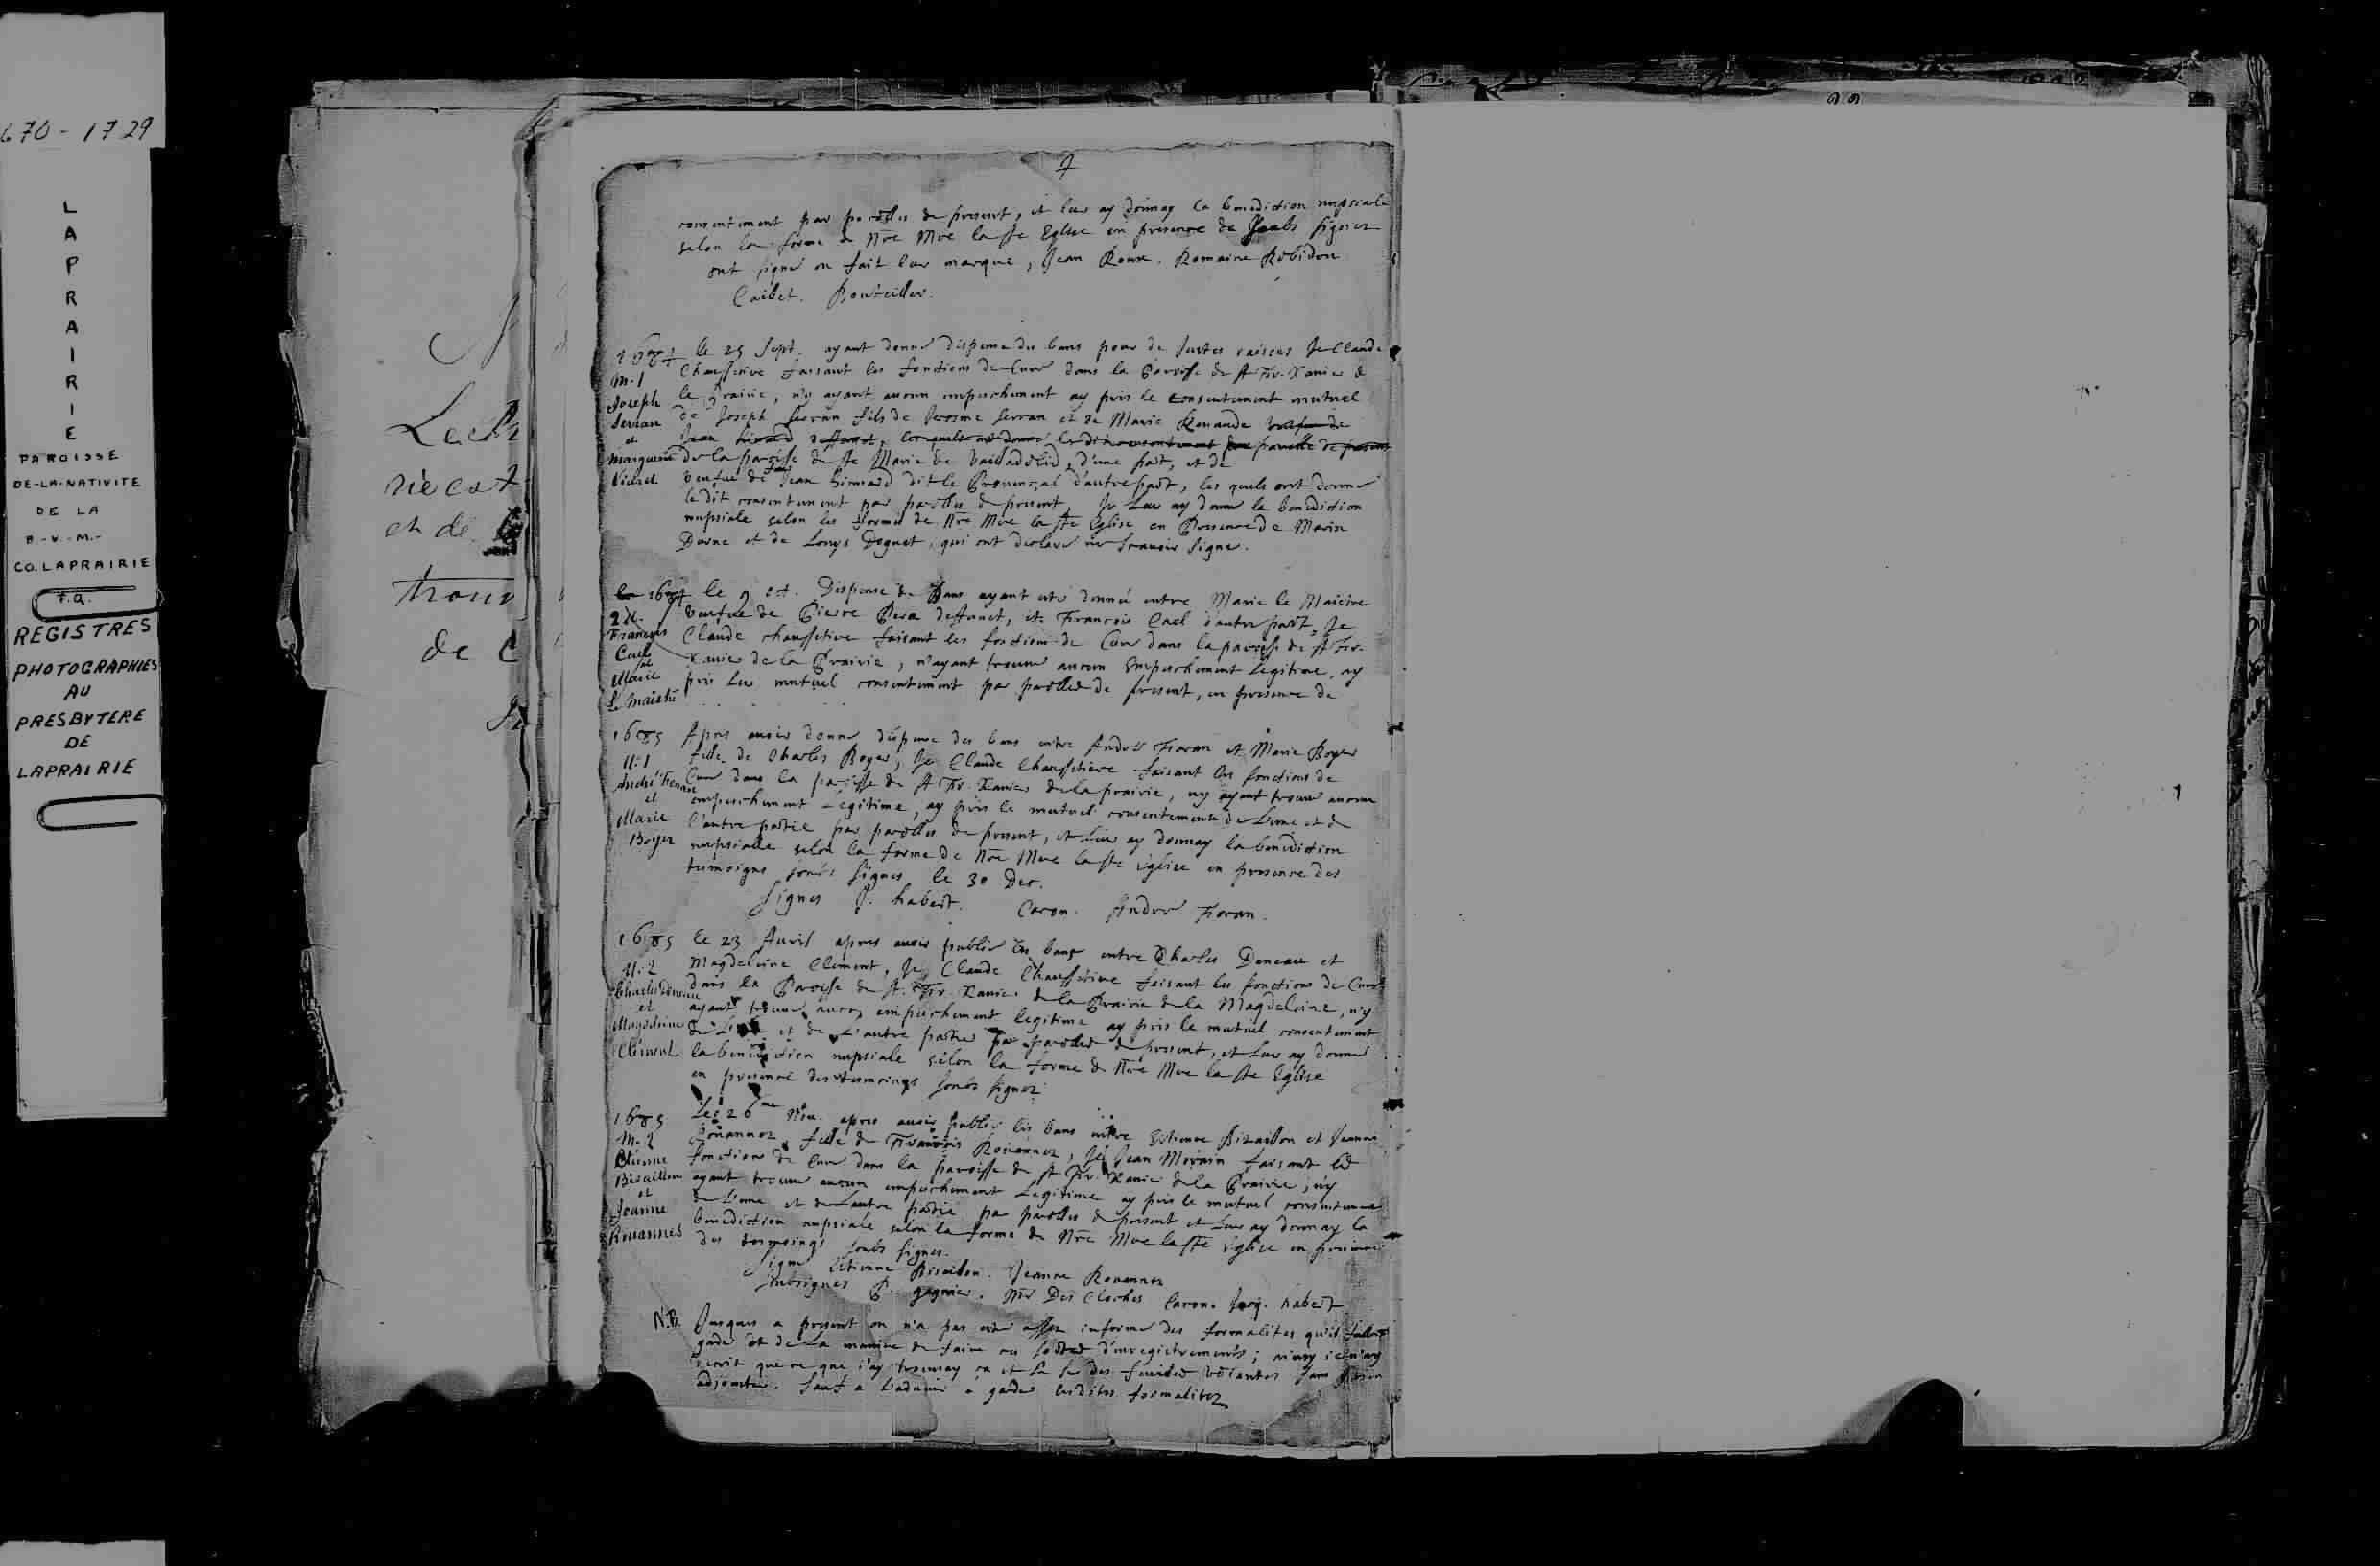 670 - 1729
LAPRAIRIE
PAROISSE
DE-LA-NATIVITE
DE LA
B.-V.-M.-
CO. LAPRAIRIE
P.Q.
REGISTRES
PHOTOGRAPHIES
AU
PRESBYTERE
DE
LAPRAIRIE
et de
de
consentement par parolles de present, et leur ay donnay la benediction nupsiale
selon la forme de Nre Mre la Ste Eglise en presence de soubs signez
ont signé ou fait leur marque, Jean Roux. Romaine Robidou
Caillet. Bouteiller.
1684 le 25 Sept. ayant donné dispense des bans pour de justes raisons Je Claude
M. 1 Chaussetive faisant les fonctions de Curé dans la Paroisse de St Fr. Xavier de
Joseph la Prairie, n'y ayant aucun empeschement ay pris le consentement mutuel
Serran de Joseph Serran fils de Jerosme Serran et de Marie
et
Marguerite de la paroisse de Ste Marie de Vailladolid, d'une part, et de
Viard veufve de feu Jean dit le Provençal d'autre part, les quels ont donné
ledit consentement par parolles de present, Je Leur ay donné la benediction
nupsiale selon la forme de Nre Mre la Ste Eglise en Presence de Marin
et de Louys qui ont declaré ne scavoir signer.
1684 le 9 oct. Dispense de Bans ayant esté donnée entre Marie le Maistre
2 M. veufve de Pierre Pera deffunct, et Francois Cael d'autre part, Je
Francois Claude chaussetive faisant les fonctions de Curé dans la paroisse de St Fr.
Cael Xavier de la Prairie, n'ayant trouvé aucun Empeschement Legitime, ay
et
Marie pris Leur mutuel consentement par parolles de present, en presence de
Le Maistre
1685 Apres avoir donné dispense des bans entre André Foran et Marie Boyer
M. 1 fille de Charles Boyer, Je Claude Chaussetive faisant les fonctions de
André Foran Curé dans la paroisse de St Fr. Xavier de la prairie, ny ayant trouvé aucun
et empeschement Legitime, ay pris le mutuel consentement de L'une et de
Marie l'autre partie par parolles de present, et Leur ay donnay la benediction
Boyer nupsialle selon la forme de Nre Mre la Ste Eglise en presence des
temoigns soués signes le 30 Dec.
Signes P. habert. Caron. André Foran.
1685 Le 23 Avril apres avoir publié les bans entre Charles Deneau et
M. 2 Magdeleine Clement, Je Claude Chaussetive faisant les fonctions de Curé
Charles Deneau dans la Paroisse de St. Fr. Xavier de la Prairie de la Magdeleine, n'y
et ayant trouvé aucun empeschement legitime ay pris le mutuel consentement
Magdeleine de L'une et de L'autre partie par parolles de present, et Leur ay donné
Clément la benediction nupsiale selon la forme de Nre Mre la Ste Eglise
en presence des temoings soués signez
1685 Le 26me Nov. apres avoir publié les bans entre Estienne Bizaillon et Jeanne
M. 2 Roüannez fille de Francois Roüannez, Je Jean Morain faisant les
Etienne fonctions de Curé dans la paroisse de St Fr. Xavier de la Prairie, n'y
Bisaillon ayant trouvé aucun empeschement Legitime ay pris le mutuel consentement
et de L'une et de L'autre partie par parolles de present et Leur ay donnay la
Jeanne benediction nupsiale selon la forme de Nre Mre la Ste Eglise en presence
Rouannes des tesmoings soubs signez.
Signé Etienne Bisaillon. Jeanne Rouannez
Subsignes P. gagnier. Mr Des Cloches Caron. habert
N.B. Jusques a present on n'a pas esté assez informé des formalites qu'il falloit
garder et de La maniere de faire ces sortes d'enregistrements; ainsy je n'ay
escrit que ce que j'ay trouvay ça et La sur des feuilles volantes sans y rien
adjouster. Sauf a L'advenir a garder lesdites formalitez